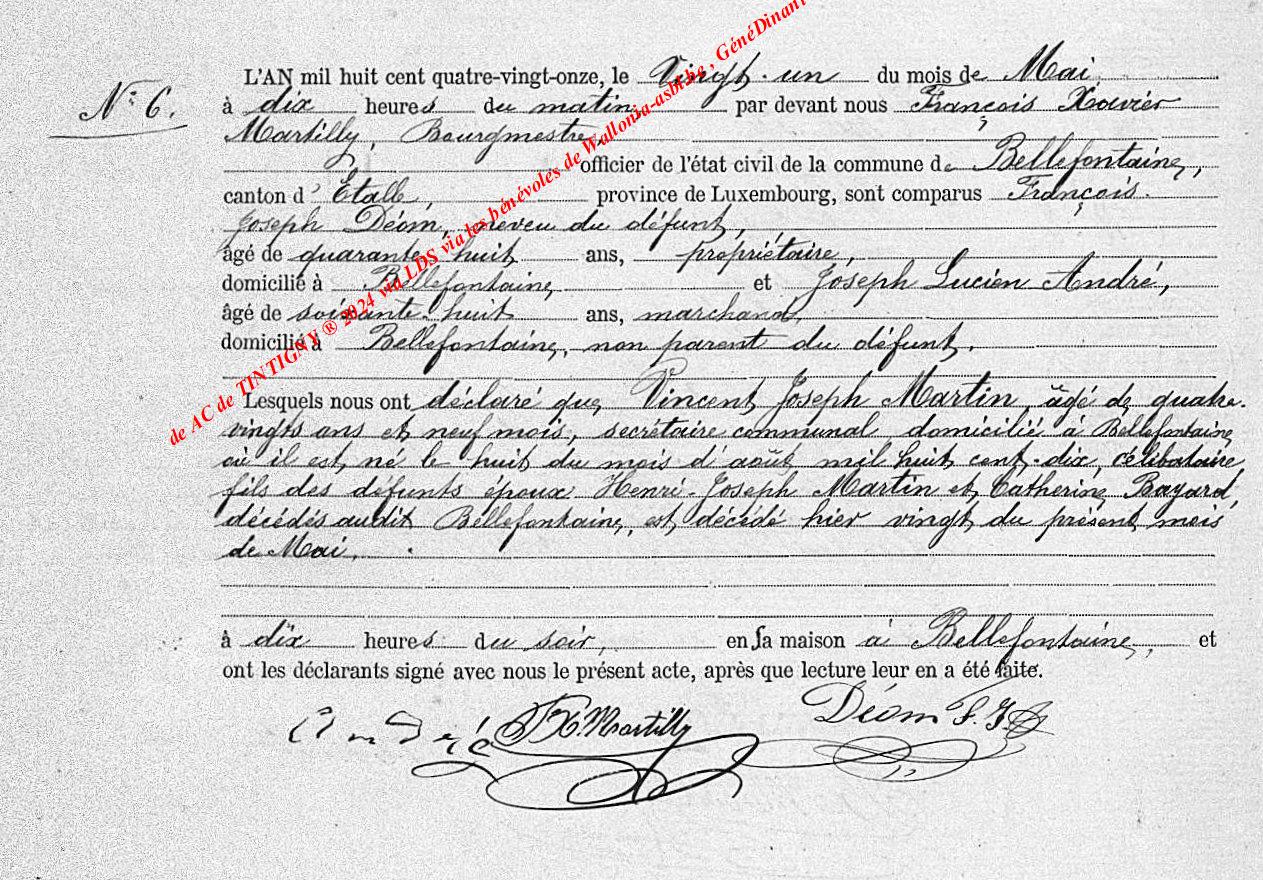 L'AN mil huit cent quatre-vingt-onze, le Vingt-un du mois de Mai
N° 6. à dix heures du matin, par devant nous François Xavier
Martilly, Bourgmestre,
officier de l'état civil de la commune de Bellefontaine,
canton d'Etalle, province de Luxembourg, sont comparus François-
Joseph Déom, neveu du défunt,
âgé de quarante-huit ans, propriétaire,
domicilié à Bellefontaine et Joseph Lucien André,
âgé de soixante-huit ans, marchand,
domicilié à Bellefontaine, non parent du défunt.
Lesquels nous ont déclaré que Vincent Joseph Martin, âgé de quatre-
vingts ans et neuf mois, secrétaire communal, domicilié à Bellefontaine
où il est né le huit du mois d'août mil huit cent-dix, célibataire,
fils des défunts époux Henri-Joseph Martin et Catherine Bayard,
décédés audit Bellefontaine, est décédé hier vingt du présent mois
de Mai,
à dix heures du soir, en sa maison à Bellefontaine, et
ont les déclarants signé avec nous le présent acte, après que lecture leur en a été faite.
André F.X. Martilly Déom F.J.
de AC de TINTIGNY ® 2024 via LDS via les bénévoles de Wallonia-asbl.be, GénéDinant